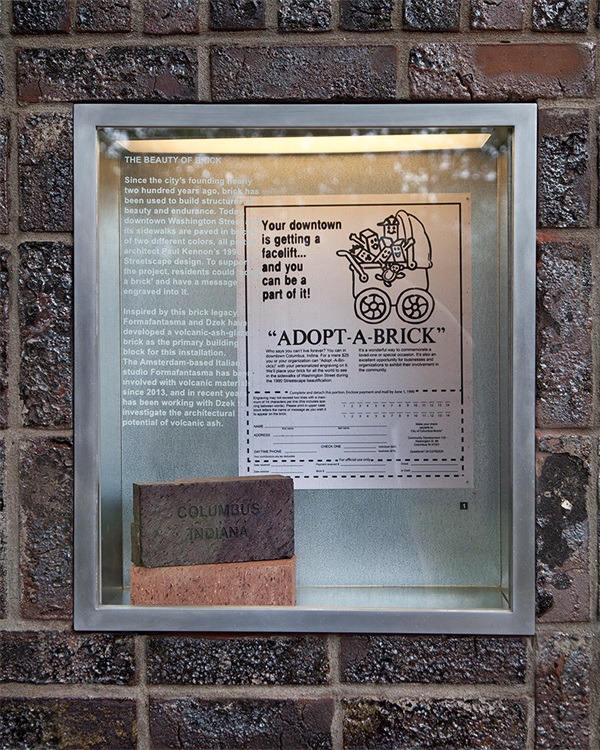 THE BEAUTY OF BRICK
Since the city's founding nearly
two hundred years ago, brick has
been used to build structures
beauty and endurance. Today
downtown Washington Street
its sidewalks are paved in brick
of two different colors, all
architect Paul Kennon's
Streetscape design. To support
the project, residents could
a brick' and have a message
engraved into it.
Inspired by this brick legacy,
Formafantasma and Dzek have
developed a volcanic-ash-glazed
brick as the primary building
block for this installation.
The Amsterdam-based Italian
studio Formafantasma has been
involved with volcanic material
since 2013, and in recent years
has been working with Dzek
investigate the architectural
potential of volcanic ash.
Your downtown
is getting a
facelift...
and you
can be a
part of it!
"ADOPT-A-BRICK"
Who says you can't live forever? You can in
downtown Columbus, Indiana. For a mere $25
you or your organization can "Adopt -A-
Brick" with your personalized engraving on it.
We'll place your brick for all the world to see
in the sidewalks of Washington Street during
the 1990 Streetscape beautification.
It's a wonderful way to commemorate a
loved-one or special occasion. It's also an
excellent opportunity for businesses and
organizations to exhibit their involvement in
the community.
Complete and detach this portion. Enclose payment and mail by June 1, 1990
NAME
ADDRESS
CHECK ONE
DAYTIME PHONE
For official use only
1
COLUMBUS
INDIANA